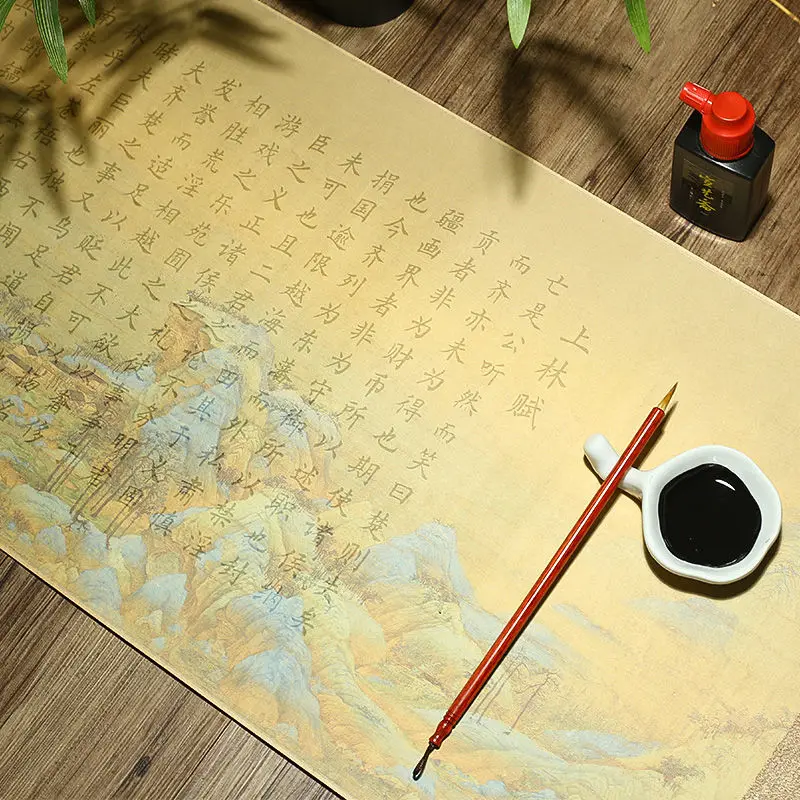 上林赋
亡是公听然而笑曰楚则失矣
而齐亦未为得也期使诸侯纳
贡者非为财币所以述职也封
疆画界者非为守御所以禁淫
也今齐列为东藩而外私肃慎
捐国逾限越海而田其于义固
未可也且二君之论不务明君
臣之义正诸侯之礼徒事争于
游戏之乐苑囿之大欲以奢侈
相胜荒淫相越此不可以扬名
发誉而适足以贬君自
夫齐楚之事又乌足道
睹夫巨丽也独不闻
林乎左苍梧右西